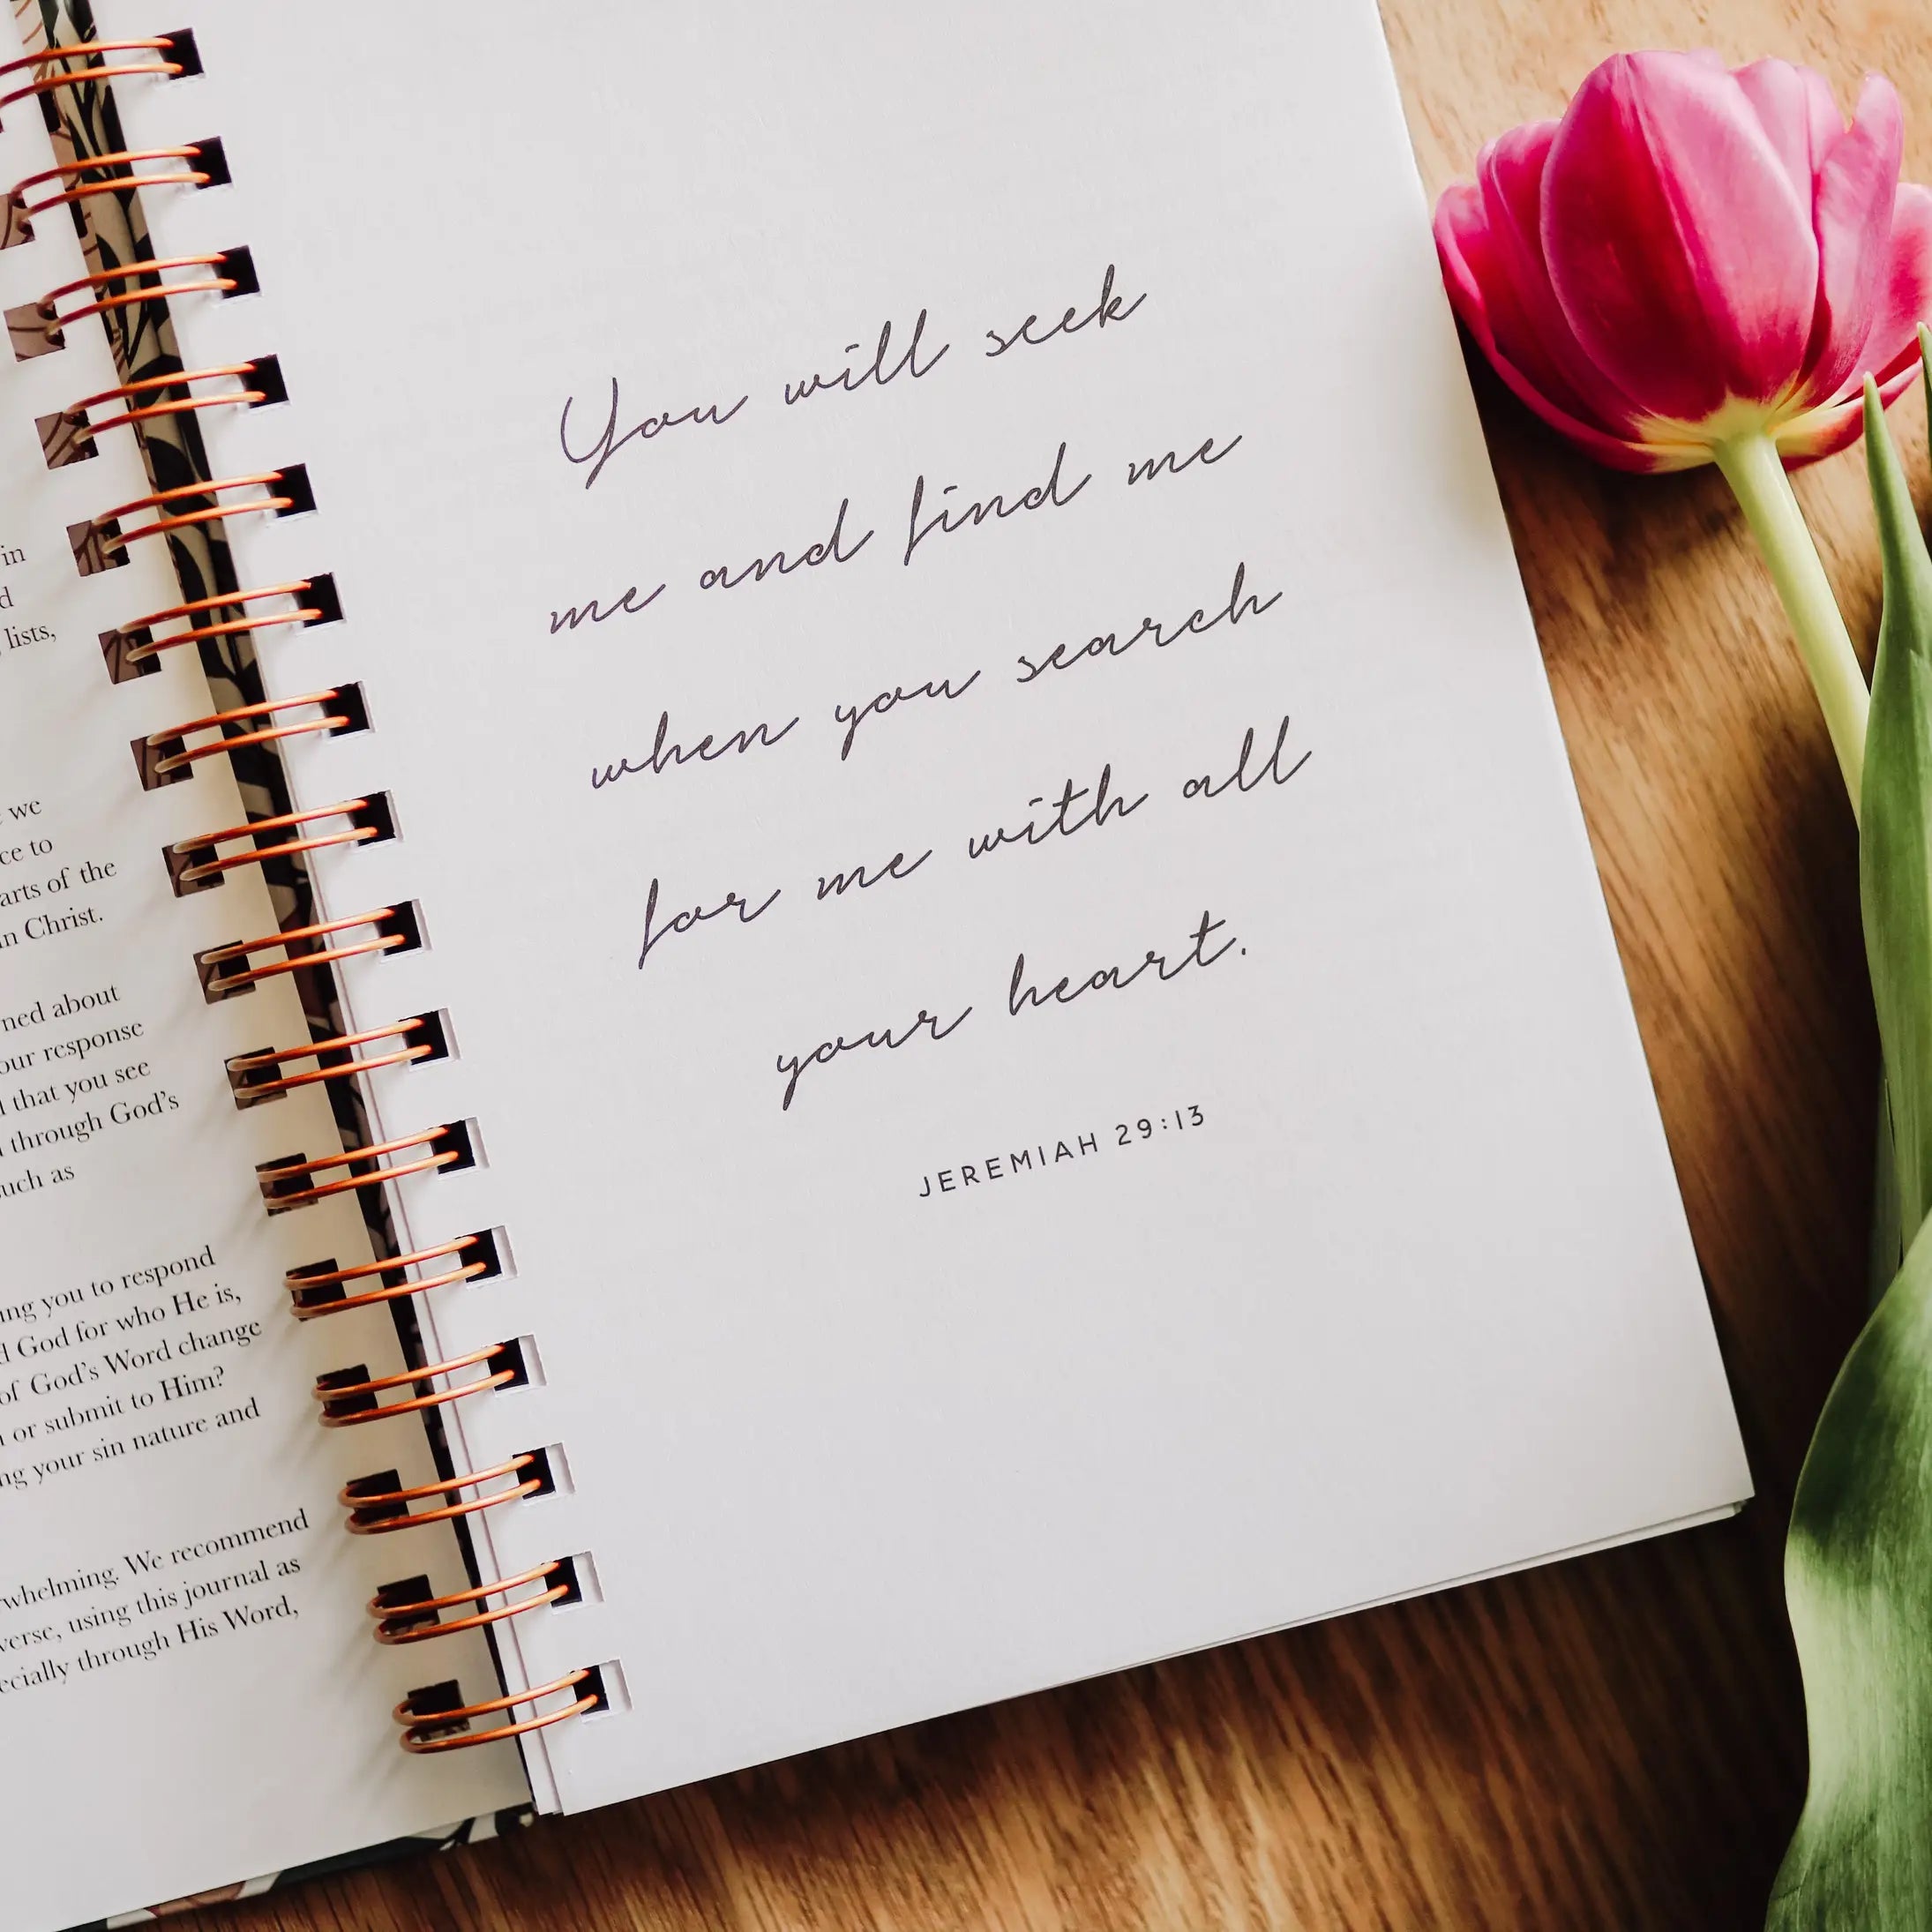 in
lists,
we
to
of the
in Christ.
about
our response
that you see
through God's
such as
you to respond
God for who He is,
of God's Word change
or submit to Him?
your sin nature and
We recommend
verse, using this journal as
through His Word,
You will seek
me and find me
when you search
for me with all
your heart.
JEREMIAH 29:13